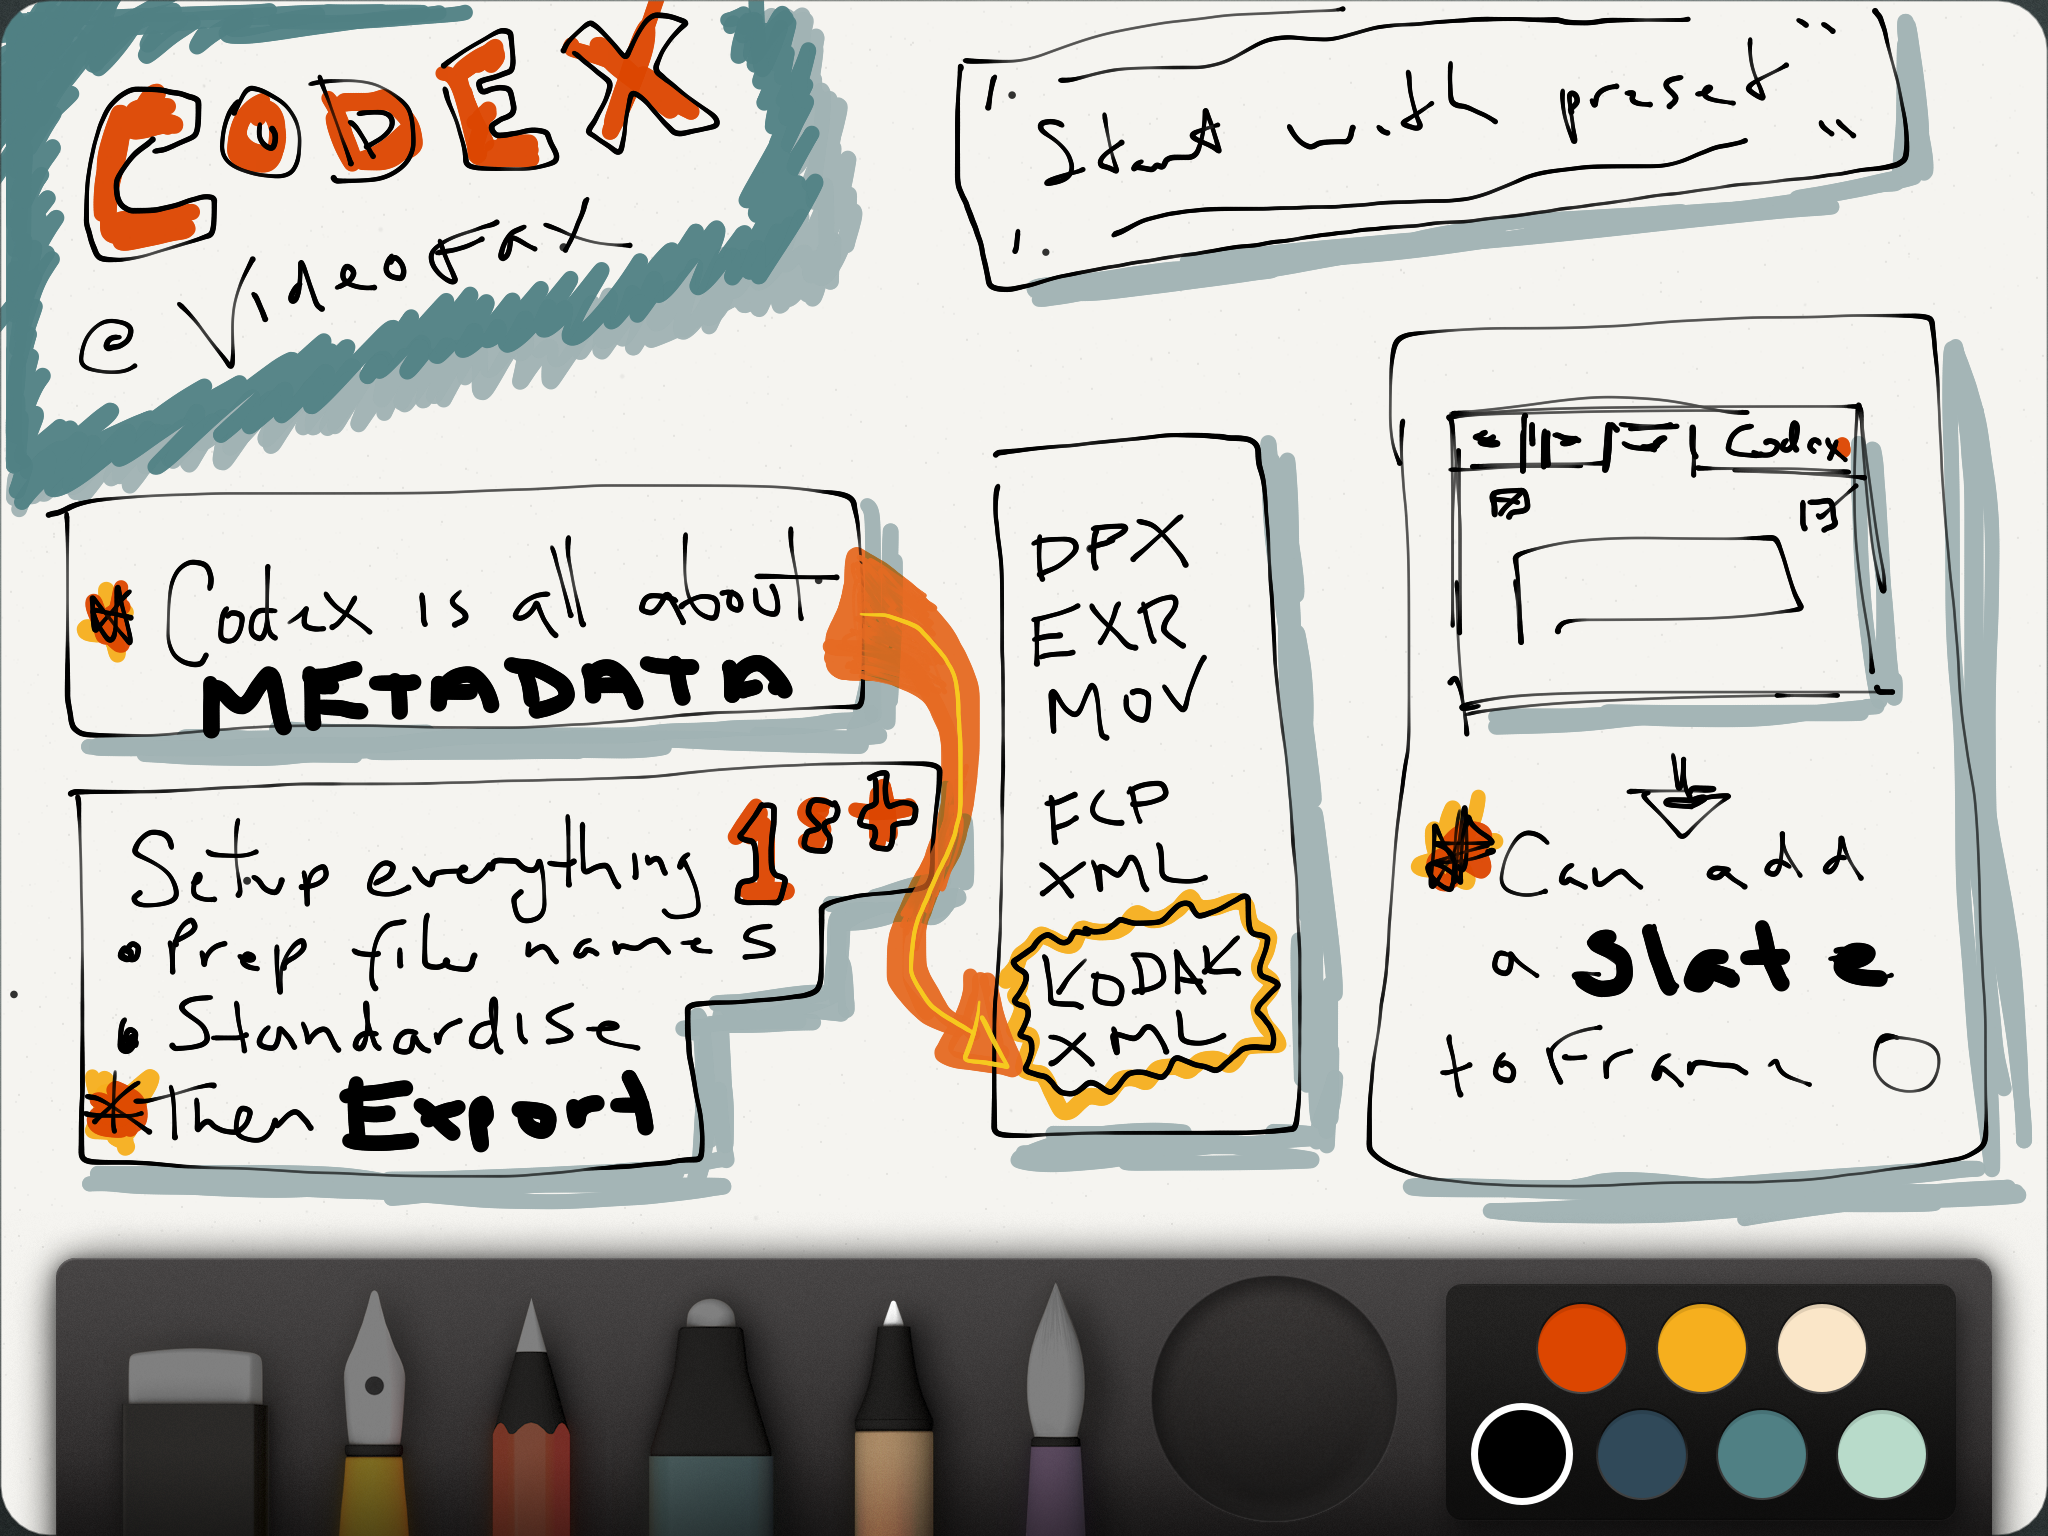 CODEX
@ VideoFax
Start with preset
Codex is all about
METADATA
Setup everything 1st
Prep file names
Standardise
Then Export
DPX
EXR
MOV
FCP
XML
KODAK
XML
Codex
Can add
a Slate
to Frame